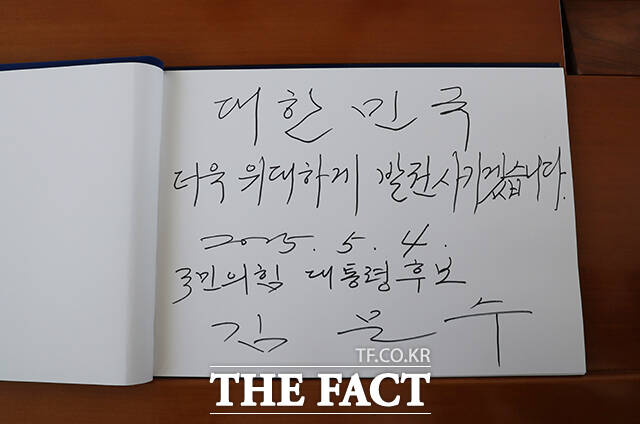 대한민국
더욱 위대하게 발전시키겠습니다.
2025. 5. 4.
국민의힘 대통령후보
김 문 수
TF.CO.KR
THE FACT